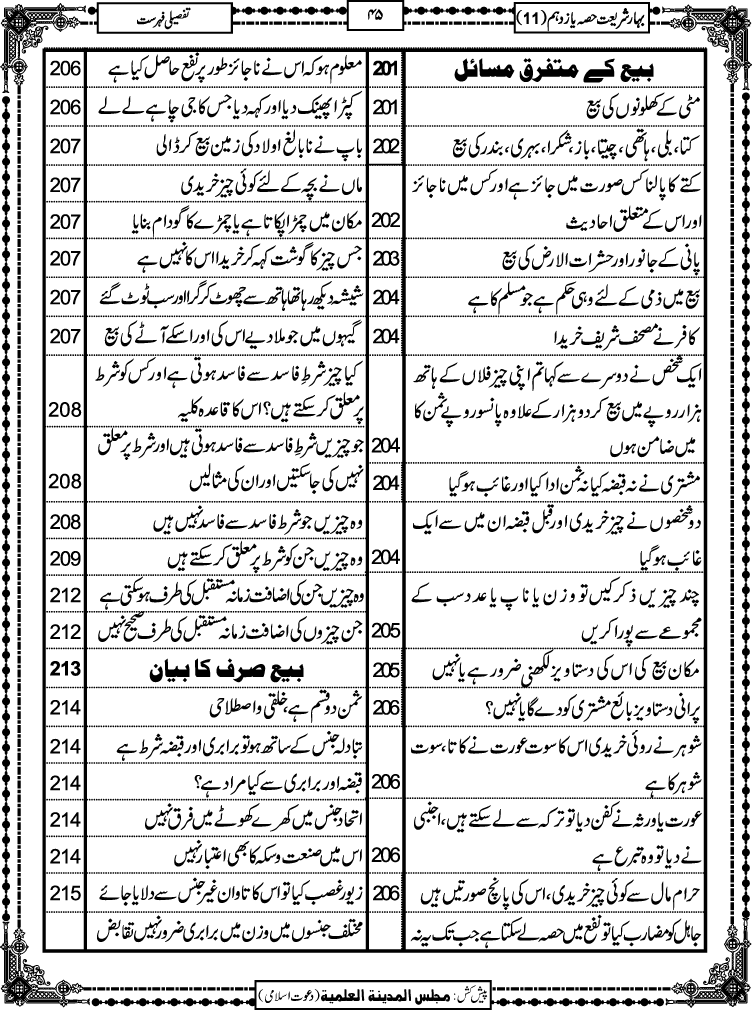 بہار شریعت حصہ یازدہم (11)
۴۵
تفصیلی فہرست
بیع کے متفرق مسائل 201
مٹی کے کھلونوں کی بیع 201
کتا، بلی، ہاتھی، چیتا، باز، شکرا، بہری، بندر کی بیع 202
کتے کا پالنا کس صورت میں جائز ہے اور کس میں ناجائز
اور اس کے متعلق احادیث 202
پانی کے جانور اور حشرات الارض کی بیع 203
بیع میں ذمی کے لئے وہی حکم ہے جو مسلم کا ہے 204
کافر نے مصحف شریف خریدا 204
ایک شخص نے دوسرے سے کہا تم اپنی چیز فلاں کے ہاتھ
ہزار روپے میں بیع کر دو ہزار کے علاوہ پانسو روپے ثمن کا
میں ضامن ہوں 204
مشتری نے نہ قبضہ کیا نہ ثمن ادا کیا اور غائب ہو گیا 204
دو شخصوں نے چیز خریدی اور قبل قبضہ ان میں سے ایک
غائب ہو گیا 204
چند چیزیں ذکر کیں تو وزن یا ناپ یا عدد سب کے
مجموعے سے پورا کریں 205
مکان بیع کی اس کی دستاویز لکھنی ضرور ہے یا نہیں 205
پرانی دستاویز بائع مشتری کو دے گا یا نہیں؟ 206
شوہر نے روئی خریدی اس کا سوت عورت نے کاتا، سوت
شوہر کا ہے 206
عورت یا ورثہ نے کفن دیا تو ترکہ سے لے سکتے ہیں، اجنبی
نے دیا تو وہ تبرع ہے 206
حرام مال سے کوئی چیز خریدی، اس کی پانچ صورتیں ہیں 206
جاہل کو مضارب کیا تو نفع میں حصہ لے سکتا ہے جب تک یہ نہ
معلوم ہو کہ اس نے ناجائز طور پر نفع حاصل کیا ہے 206
کپڑا پھینک دیا اور کہہ دیا جس کا جی چاہے لے لے 206
باپ نے نابالغ اولاد کی زمین بیع کر ڈالی 207
ماں نے بچہ کے لئے کوئی چیز خریدی 207
مکان میں چمڑا پکاتا ہے یا چمڑے کا گودام بنایا 207
جس چیز کا گوشت کہہ کر خریدا اس کا نہیں ہے 207
شیشہ دیکھ رہا تھا ہاتھ سے چھوٹ کر گرا اور سب ٹوٹ گئے 207
گیہوں میں جو ملا دیے اس کی اور اسکے آٹے کی بیع 207
کیا چیز شرطِ فاسد سے فاسد ہوتی ہے اور کس کو شرط
پر معلق کر سکتے ہیں؟ اس کا قاعدہ کلیہ 208
جو چیزیں شرطِ فاسد سے فاسد ہوتی ہیں اور شرط پر معلق
نہیں کی جاسکتیں اور ان کی مثالیں 208
وہ چیزیں جو شرط فاسد سے فاسد نہیں ہیں 208
وہ چیزیں جن کو شرط پر معلق کر سکتے ہیں 209
وہ چیزیں جن کی اضافت زمانہ مستقبل کی طرف ہو سکتی ہے 212
جن چیزوں کی اضافت زمانہ مستقبل کی طرف صحیح نہیں 212
بیع صرف کا بیان 213
ثمن دو قسم ہے، خلقی و اصطلاحی 214
تبادلہ جنس کے ساتھ ہو تو برابری اور قبضہ شرط ہے 214
قبضہ اور برابری سے کیا مراد ہے؟ 214
اتحاد جنس میں کھرے کھوٹے میں فرق نہیں 214
اس میں صنعت و سکہ کا بھی اعتبار نہیں 214
زیور غصب کیا تو اس کا تاوان غیر جنس سے دلایا جائے 215
مختلف جنسوں میں وزن میں برابری ضرور نہیں تقابض
پیش کش : مجلس المدینۃ العلمیۃ (دعوت اسلامی)